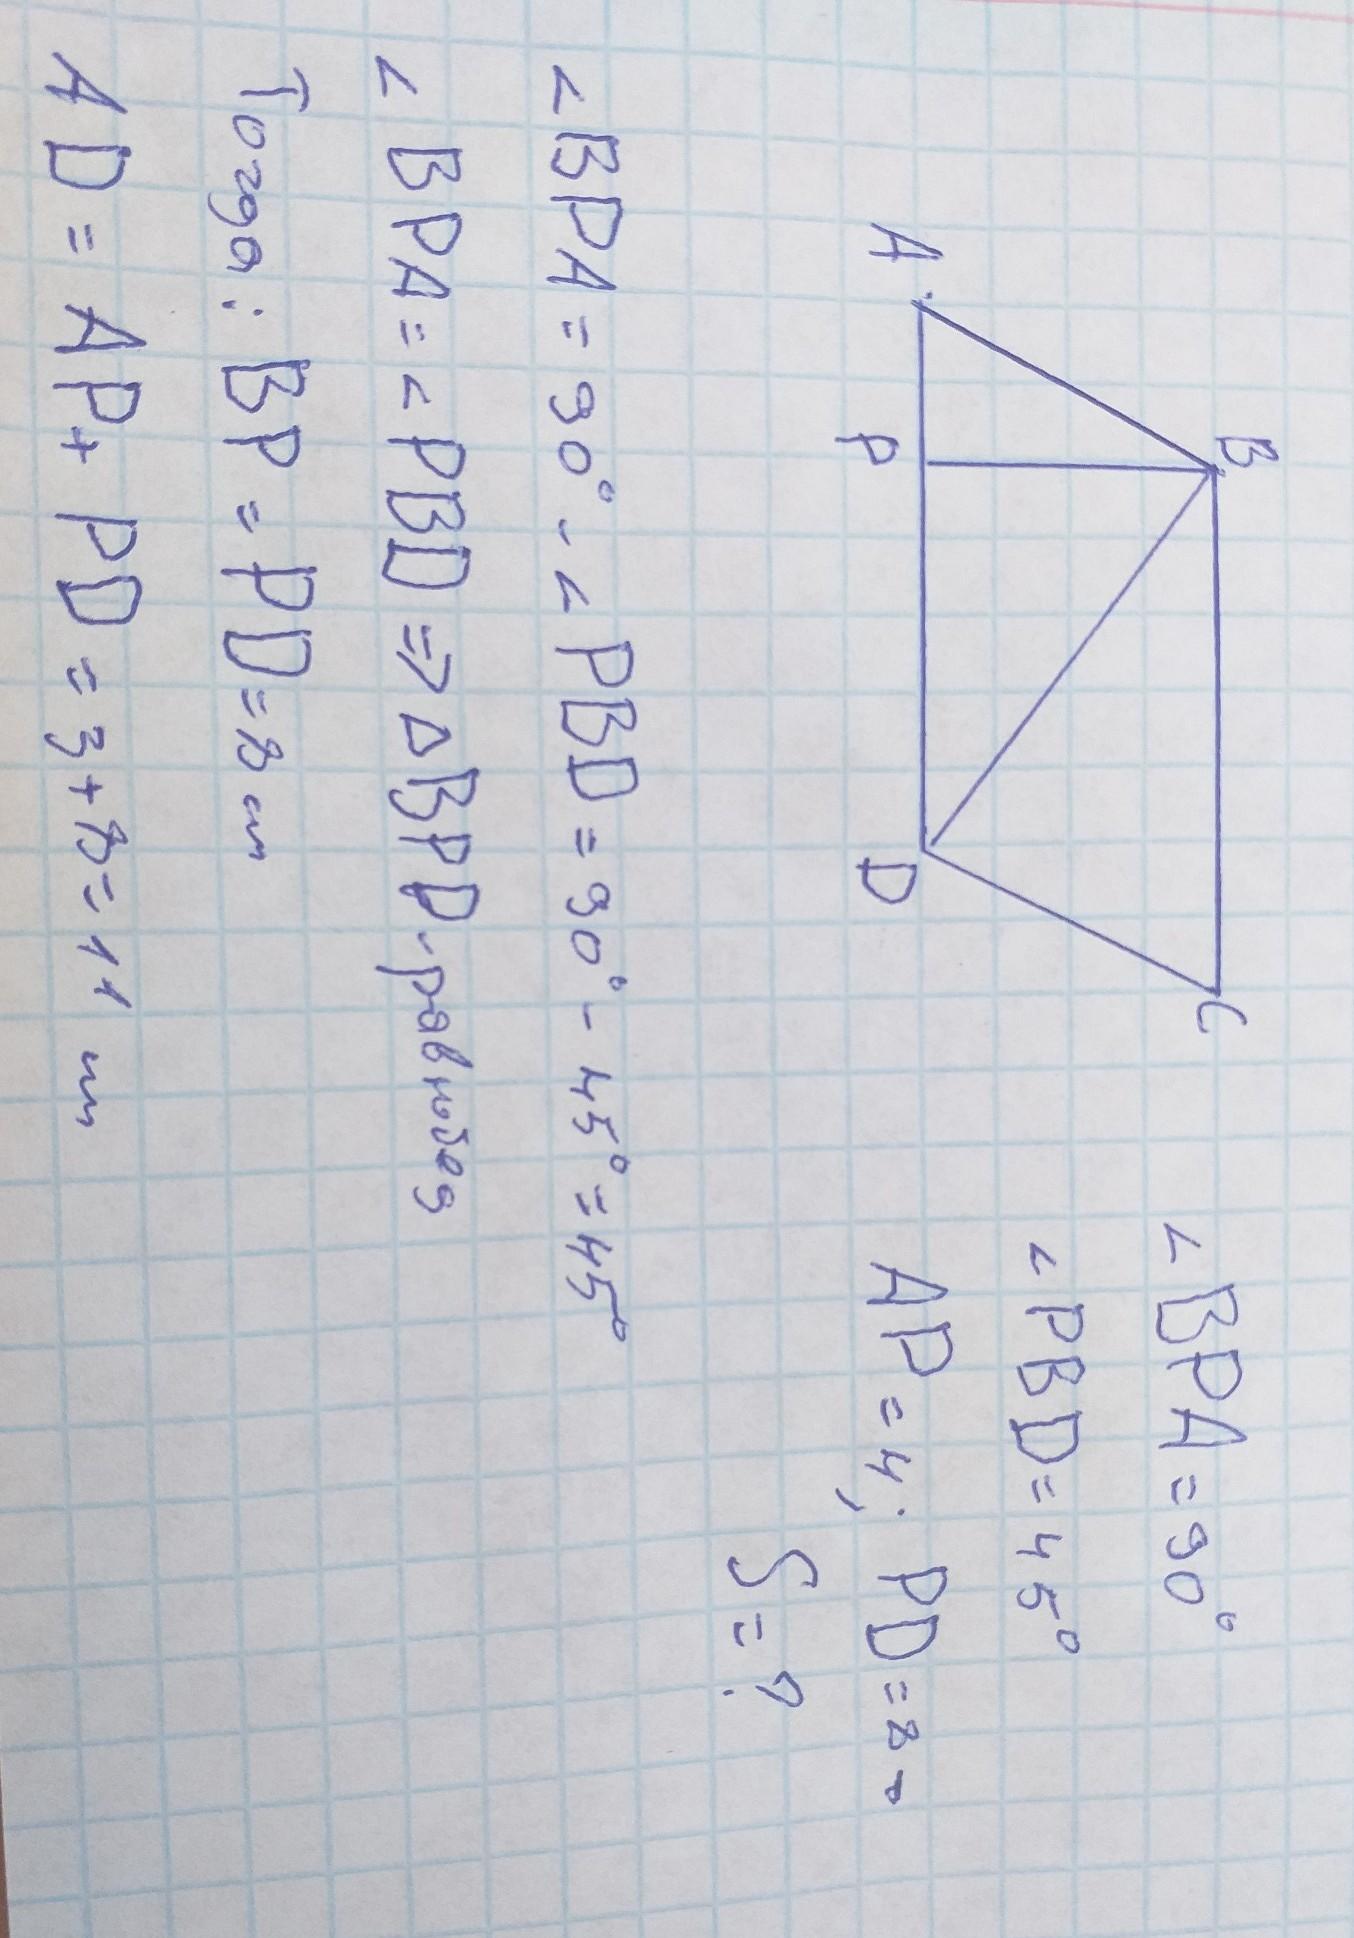 B
C
A
P
D
∠BPA = 90°
∠PBD = 45°
AP = 4; PD = 8
S = ?
∠BPA = 90° - ∠PBD = 90° - 45° = 45°
∠BPA = ∠PBD => ΔBPD - равнобед
Тогда: BP = PD = 8 см
AD = AP + PD = 3 + 8 = 11 см